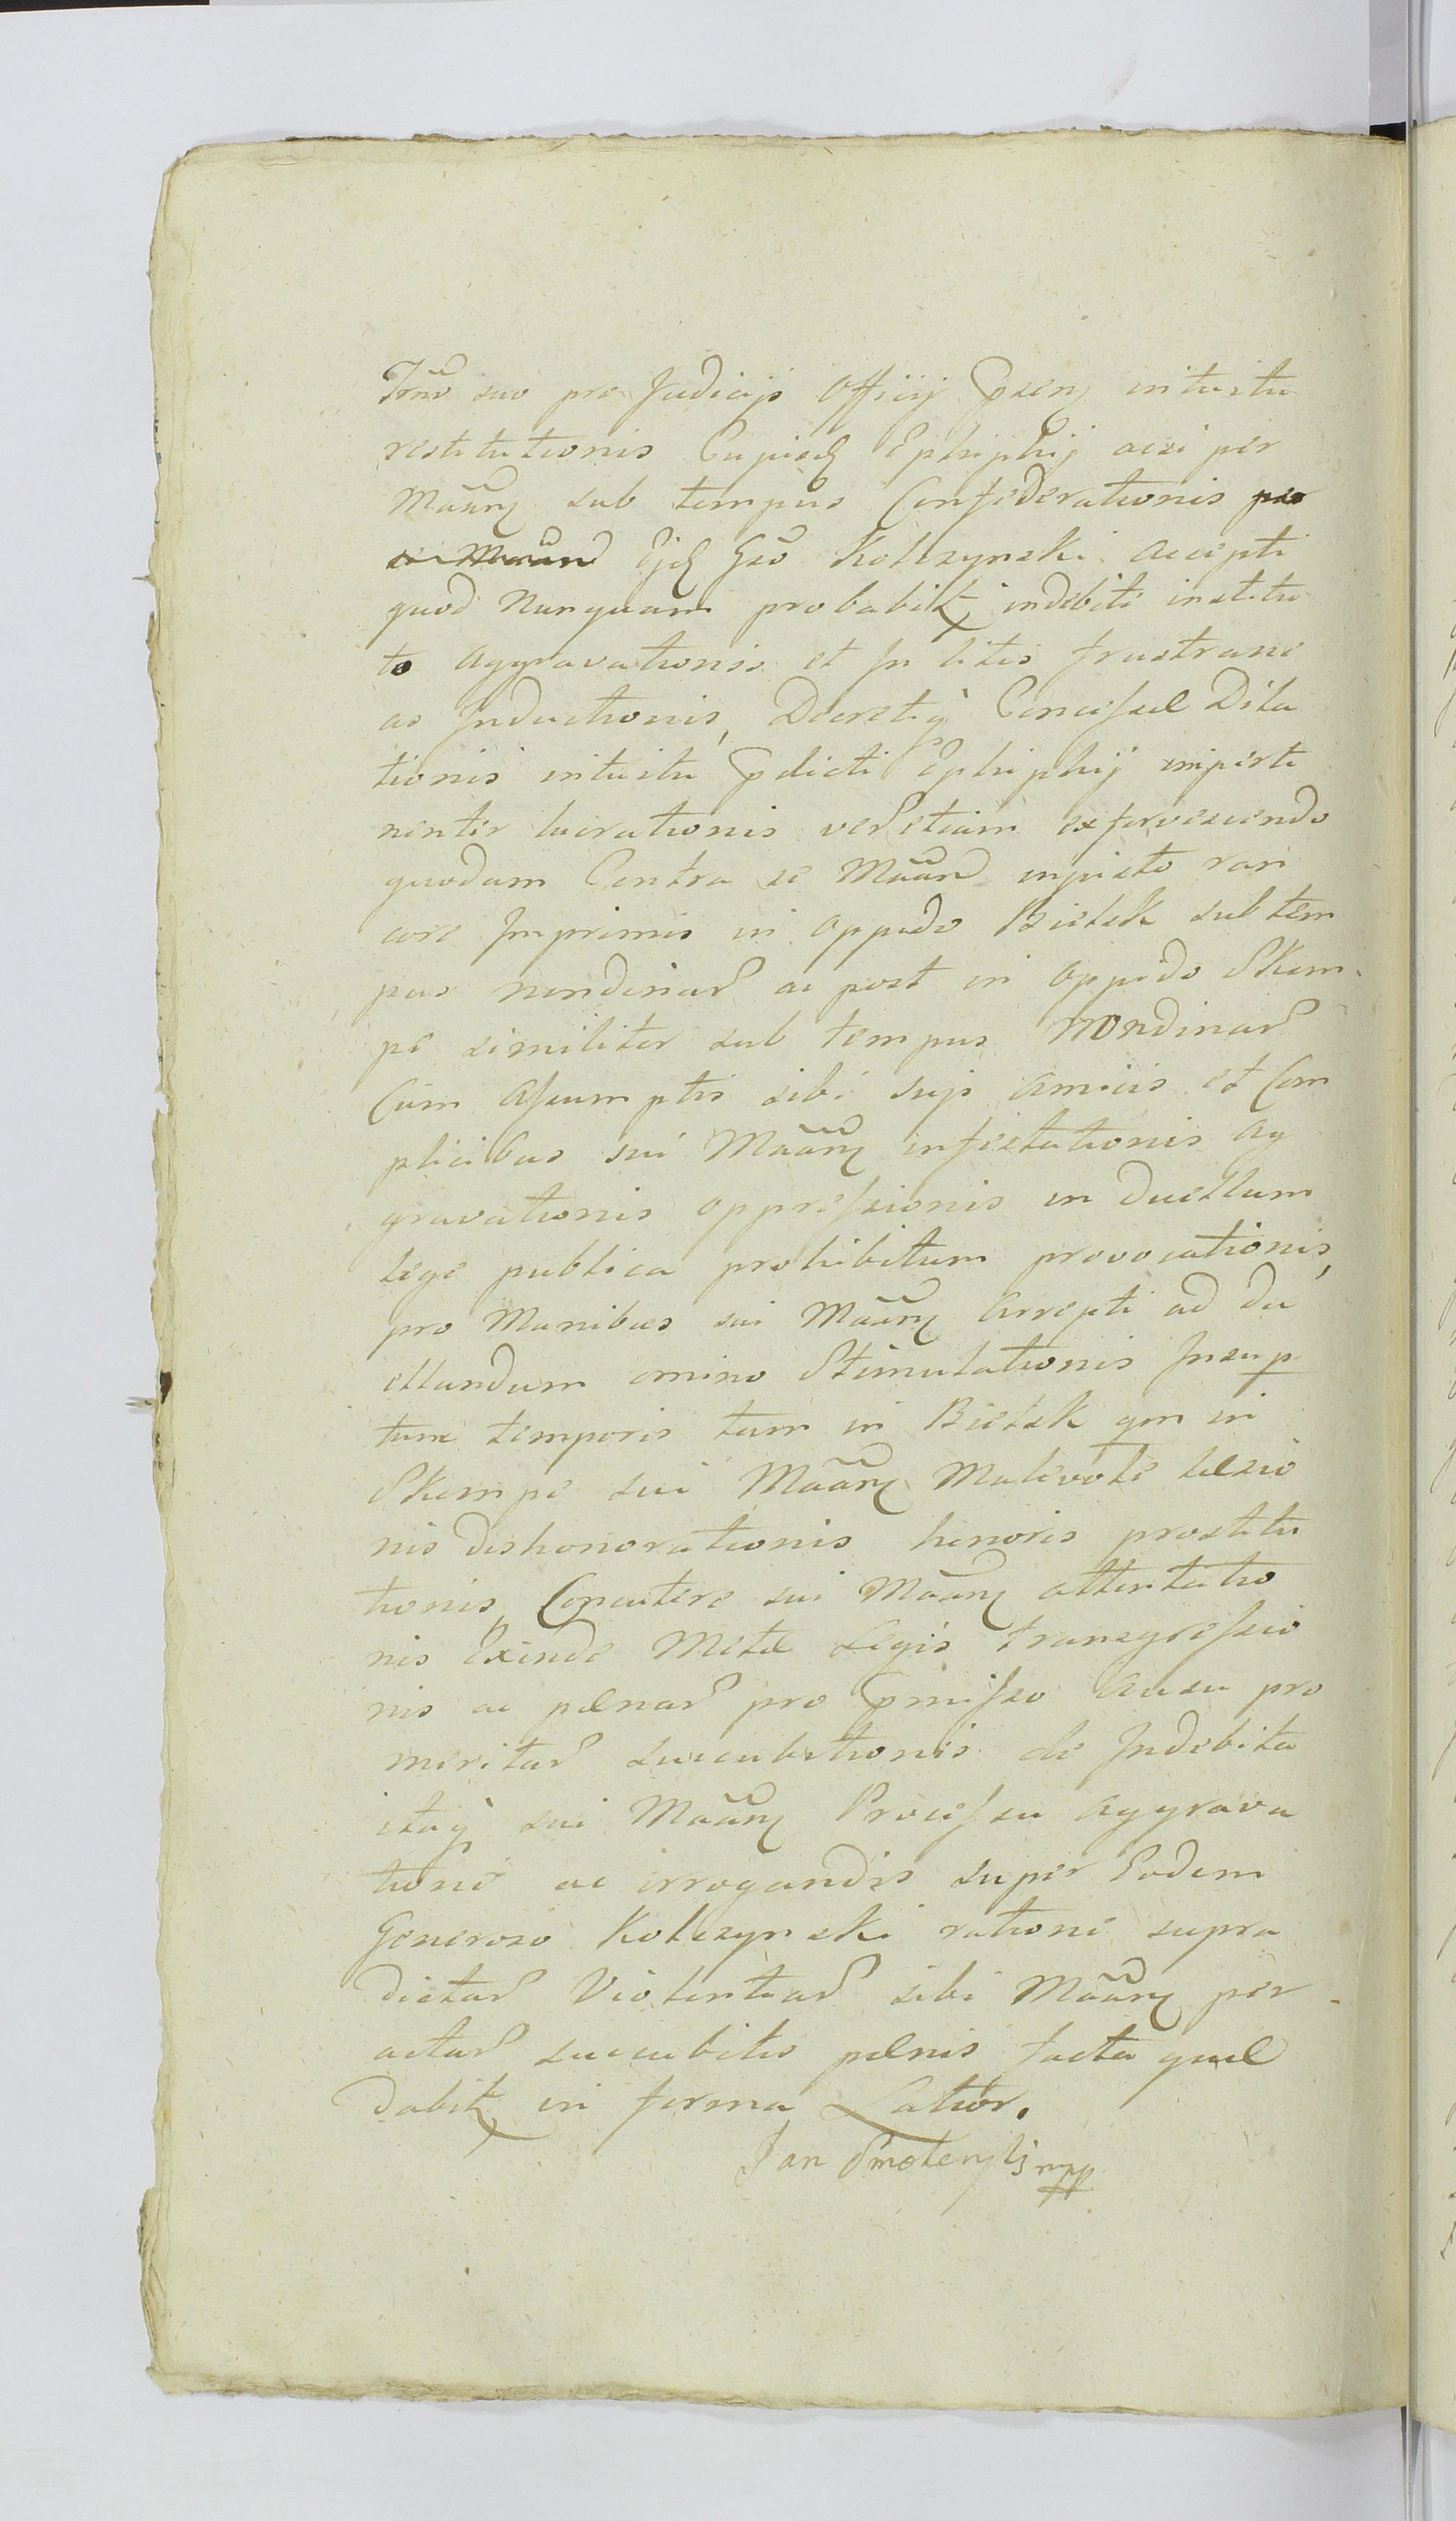 Trno suo pro Judicijs Officij Pręsenȝ intuitu
restitutionis Cujusdȝ Ephiphij acsi per
Mãarȝ sub tempus Confederationis per
se Mãand Ejdȝ Gso Kolczynski accepti
quod nunquam probabitȝ indebite institu
to Aggravationis et In litis frustrane
as Inductionis, Decretiq Concessæ Dila
tionis intuitu Pdicti Ephiphij imperti
nenter lucrationis verȝ etiam exfervescendo
quodam Contra se Mãand injusto ran
core Imprimis in Oppido Bielsk sub tem
pus nondinarȝ ac post in Oppido Skem-
pe similiter sub tempus Nondinarȝ
Cum Assumptis sibi sujs amicis et Com
plicibus sui Mãarȝ infestationis Ag
gravationis oppressionis in Duellum
lege publica prohibitum provocationis,
pro Manibus sui Mãarȝ Arrepti ad du
ellandum omino Stimulationis Insup
tunc temporis tam in Bielsk qm in
Skempe sui Mãarȝ Malevole læsio
nis dishonorationis honoris prostitu
tionis, Concutere sui Mãarȝ attentatio
nis Exinde Metæ Legis transgressio
nis ac pænarȝ pro Pmisso Ausu pro
meritarȝ succubitionis de Indebita
itaq sui Mãarȝ Processu Aggrava
tione ac irrogandis super Eodem
Generoso Kolczynski ratione supra
dictarȝ Violentiarȝ sibi Mãarȝ per-
actarȝ succubitis pænis facta quæ
dabitȝ in forma Latior.
Jan Smolenski mpp